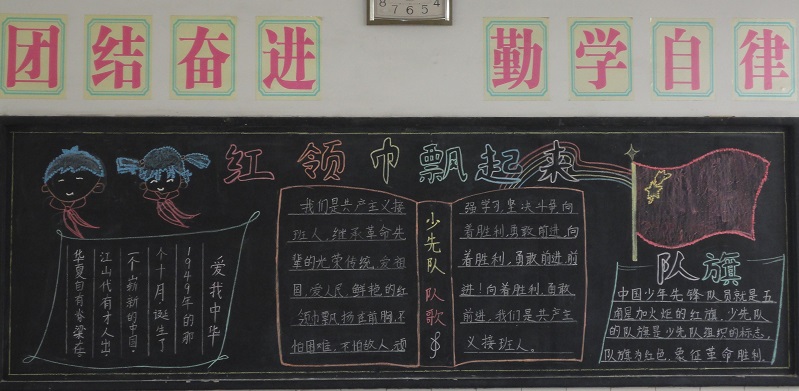 8
7 6 5 4
团结奋进 勤学自律
红领巾飘起来
爱我中华
1949年的那
个十月诞生了
一个崭新的中国。
江山代有才人出
华夏自有
我们是共产主义接
班人，继承革命先
辈的光荣传统，爱祖
国，爱人民，鲜艳的红
领巾飘扬在前胸，不
怕困难，不怕敌人，顽
少先队队歌
强学习，坚决斗争，向
着胜利，勇敢前进，向
着胜利，勇敢前进，前
进！向着胜利，勇敢
前进，我们是共产主
义接班人。
队旗
中国少年先锋队员就是五
角星加火炬的红旗，少先队
的队旗是少先队组织的标志，
队旗为红色，象征革命胜利。